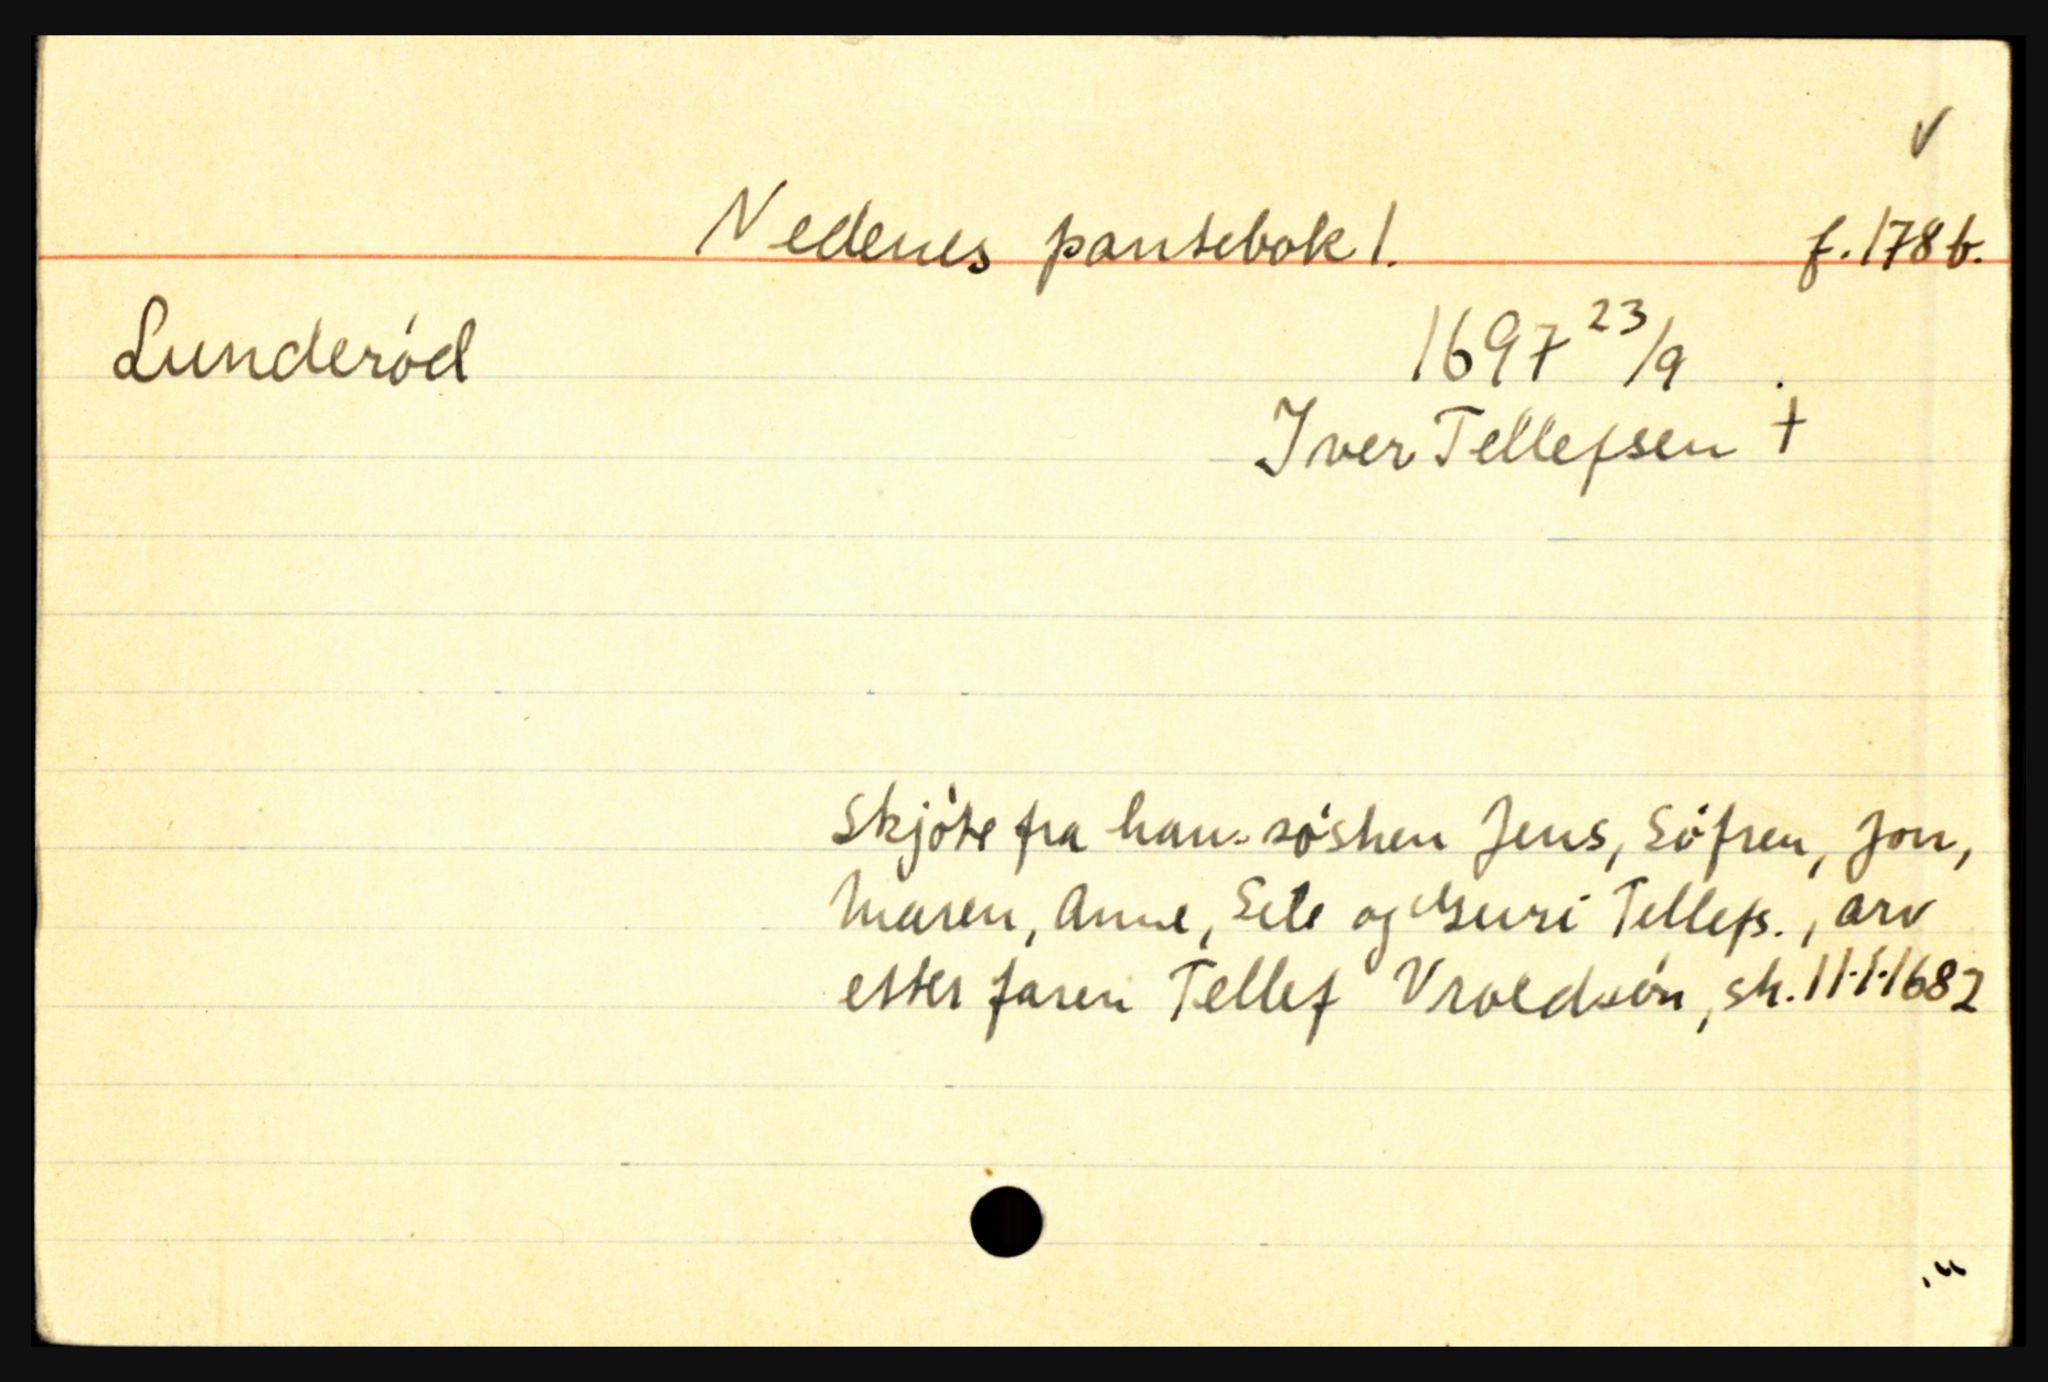 V
Nedenes pantebok 1. f. 178 b.
Lunderód 1697 23/9
Iver Tellefsen +
Skjóte fra hans sósken Jens, Sófren, Jon,
Maren, Anne, Sele og Guri Tellefs., arv
etter faren Tellef Vroldsón, sk. 11·1·1682